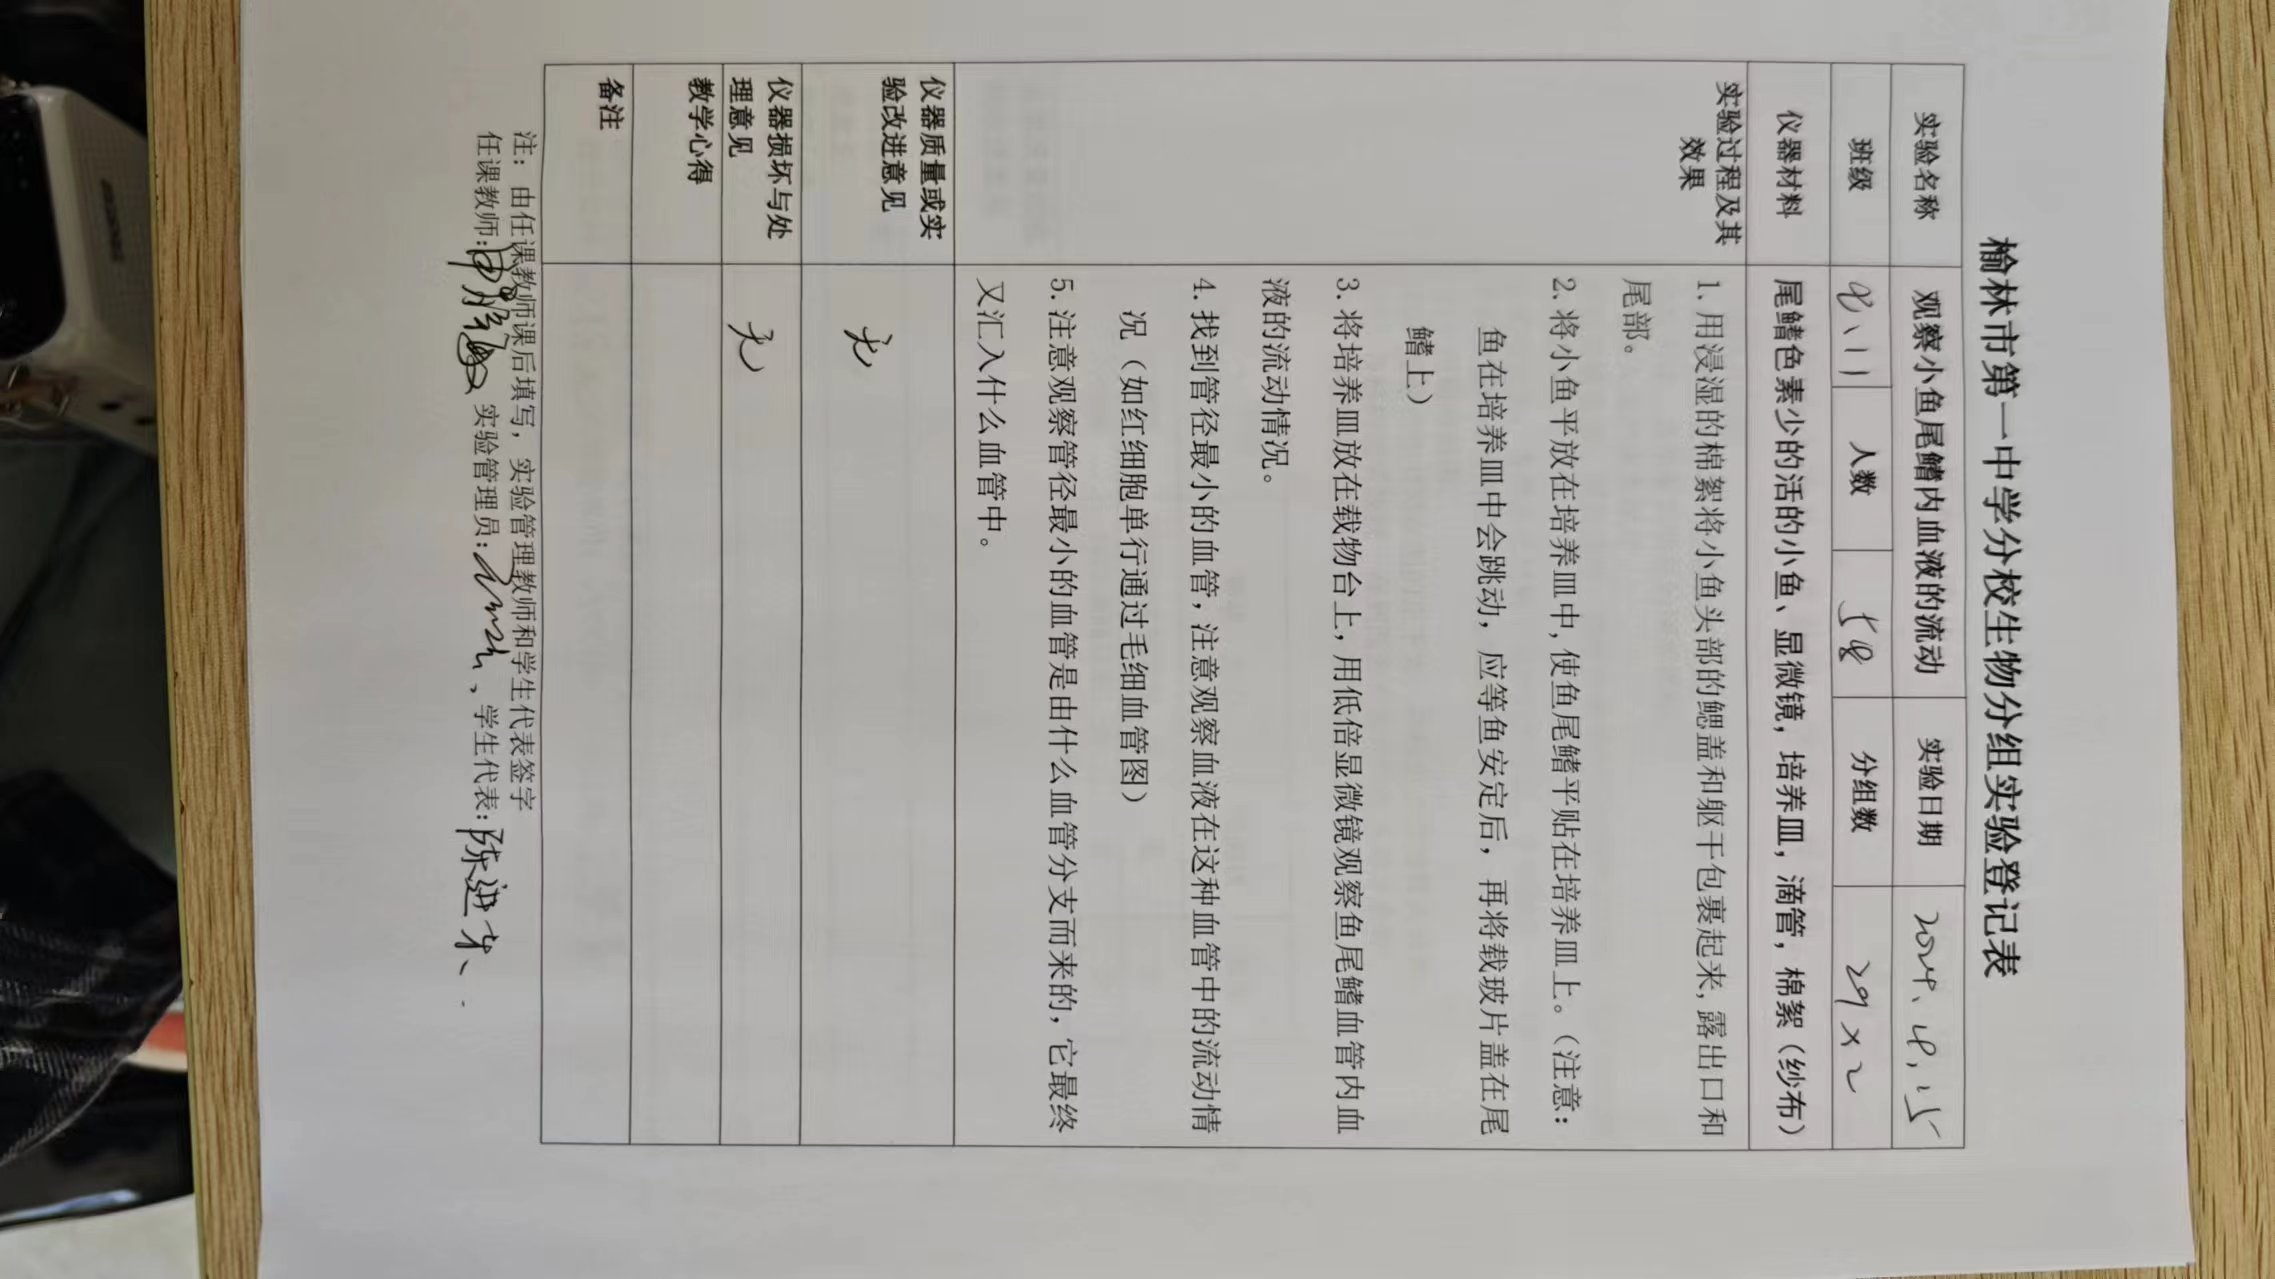 榆林市第一中学分校生物分组实验登记表
实验名称 观察小鱼尾鳍内血液的流动 实验日期 2024、4,15
班级 8、11 人数 58 分组数 29×2
仪器材料 尾鳍色素少的活的小鱼、显微镜，培养皿，滴管，棉絮（纱布）
实验过程及其
效果
1. 用浸湿的棉絮将小鱼头部的鳃盖和躯干包裹起来，露出口和
尾部。
2. 将小鱼平放在培养皿中，使鱼尾鳍平贴在培养皿上。（注意：
鱼在培养皿中会跳动，应等鱼安定后，再将载玻片盖在尾
鳍上）
3. 将培养皿放在载物台上，用低倍显微镜观察鱼尾鳍血管内血
液的流动情况。
4. 找到管径最小的血管，注意观察血液在这种血管中的流动情
况（如红细胞单行通过毛细血管图）
5. 注意观察管径最小的血管是由什么血管分支而来的，它最终
又汇入什么血管中。
仪器质量或实
验改进意见
无
仪器损坏与处
理意见
无
教学心得
备注
注：由任课教师课后填写，实验管理教师和学生代表签字
任课教师： 实验管理员： 、学生代表：陈